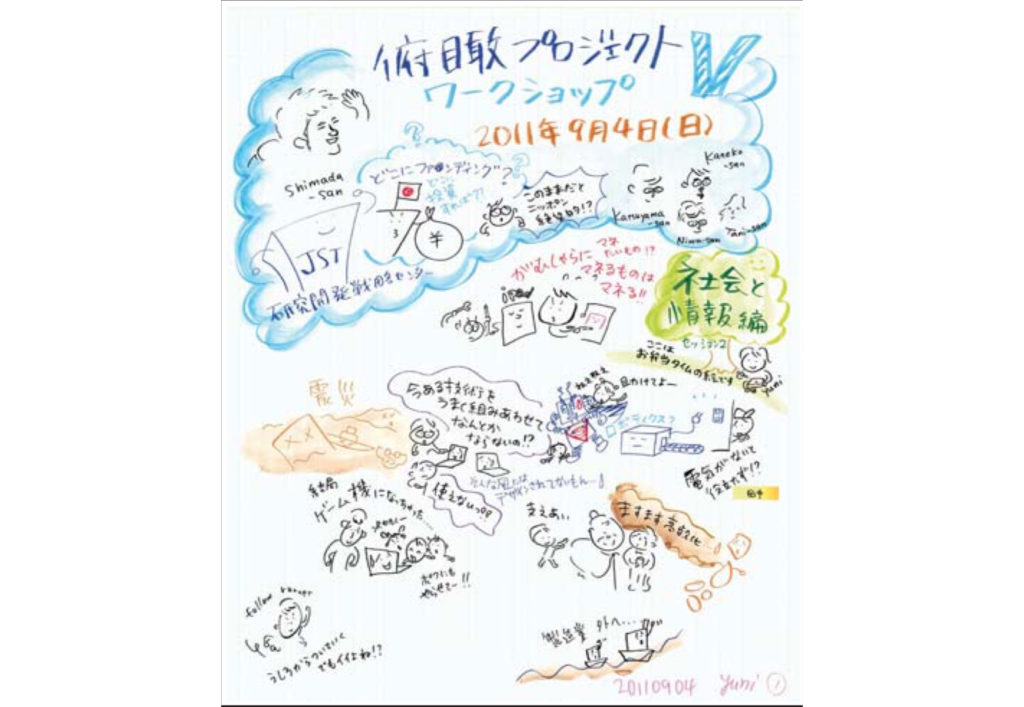 俯瞰プロジェクト V
ワークショップ
2011年9月4日(日)
Shimada
-san
どこにファンディング?
どこに
投資
すれば??
このままだと
ニッポン
Kaneko
-san
Katayama
-san
Niwa-san
Tani-san
JST
¥
研究開発戦略センター
がむしゃらに
マネ
たいもの!?
マネるものは
マネる!!
社会と
情報編
セッション2
ここは
お弁当タイムの絵です
yumi
震災
今ある技術を
うまく組みあわせて
なんとか
ならないの!?
助けてよー
ロボティクス?
そんな風には
デザインされてないもん…!
使えないっ!?
電気がないと
役立たず!?
結局
ゲーム機になっちゃった…
ボクにも
やらせてー!!
支えあい
ますます高齢化…!
follow runner
うしろからついていく
でもイイよね!?
製造業 外へ…
20110904 yumi 1